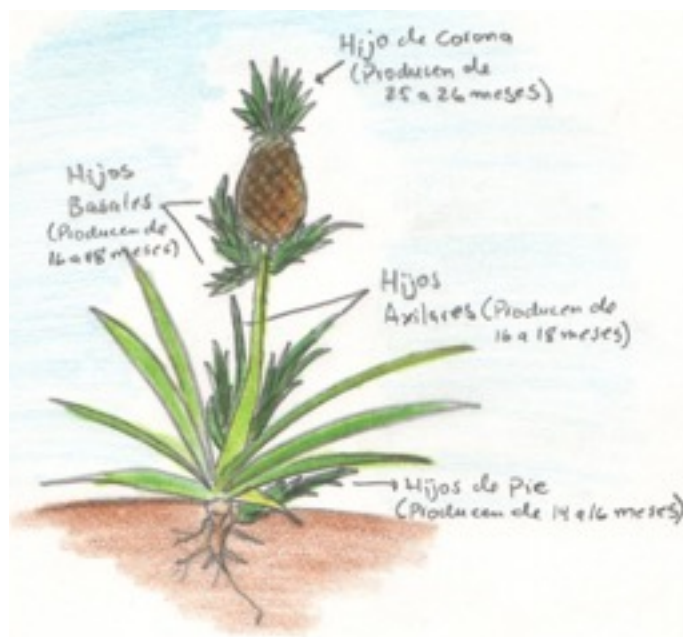 Hijo de Corona
(Producen de
25 a 26 meses)
Hijos
Basales
(Producen de
16 a 18 meses)
Hijos
Axilares (Producen de
16 a 18 meses)
Hijos de Pie
(Producen de 14 a 16 meses)